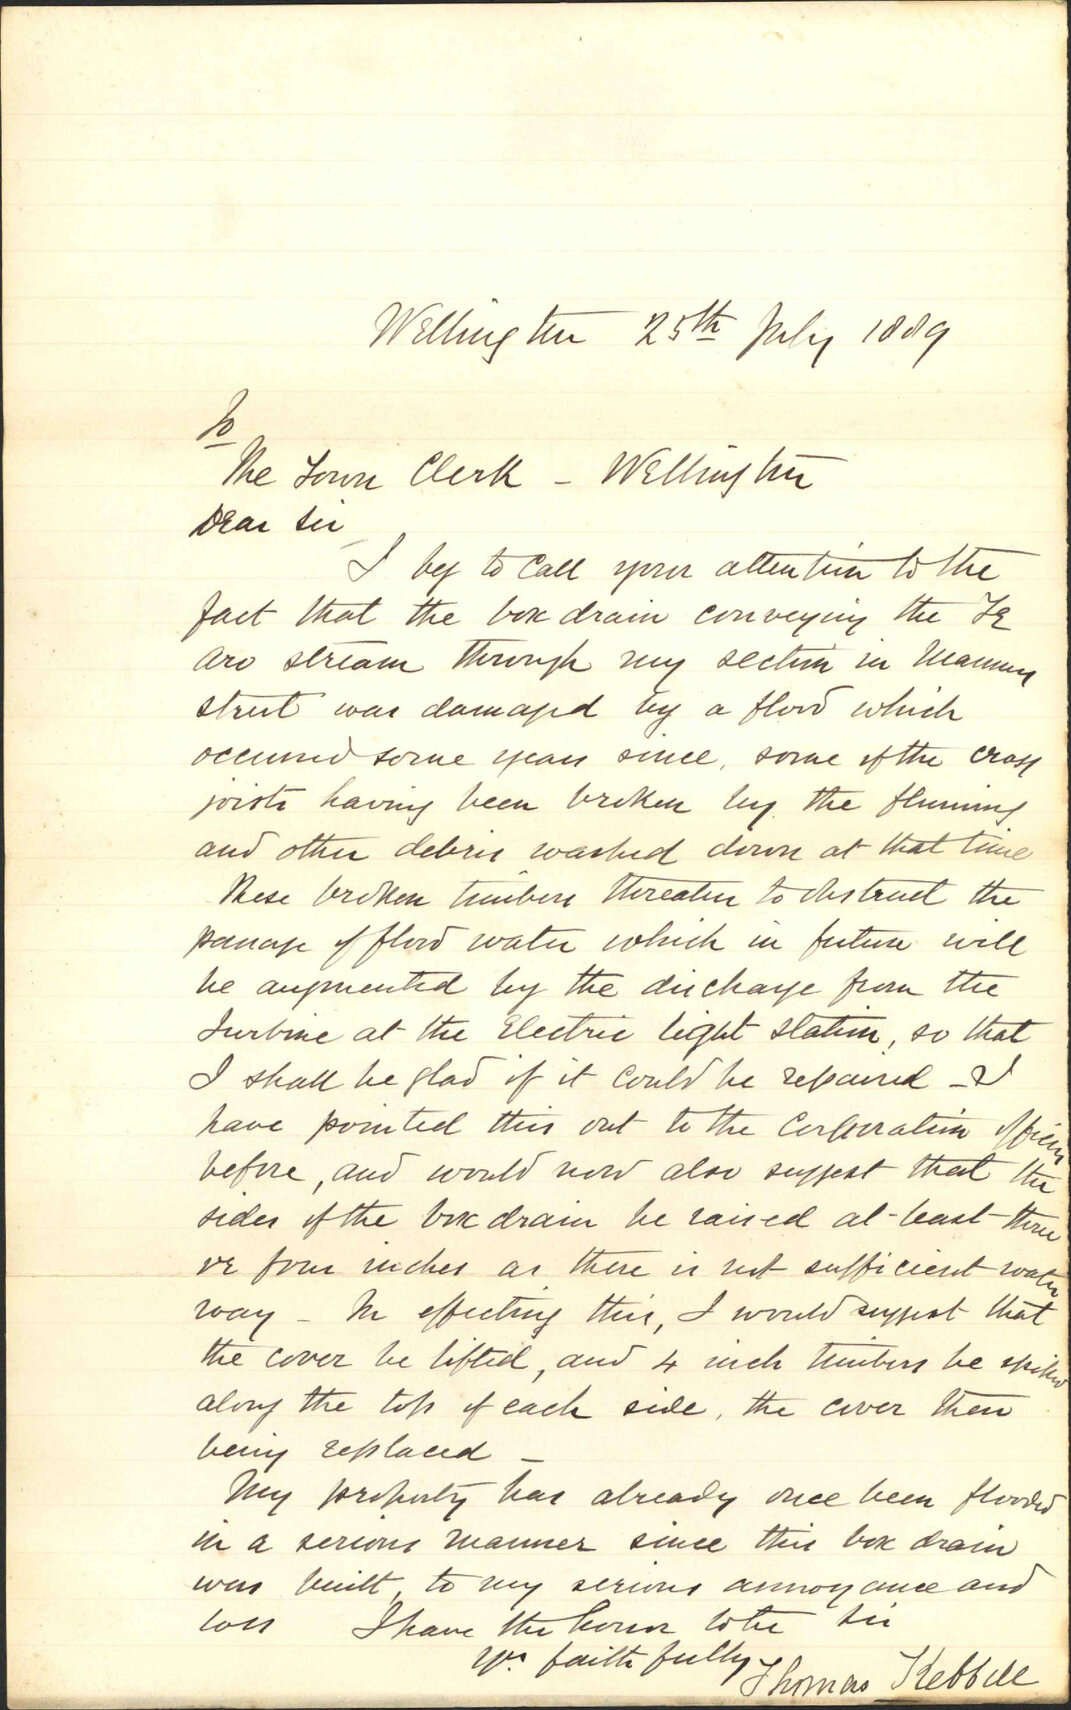 Wellington 25th July 1889
To
The Town Clerk - Wellington
Dear Sir
I beg to call your attention to the
fact that the box drain conveying the Te
Aro stream through my section in Manners
street was damaged by a flood which
occurred some years since, some of the cross
joists having been broken by the fluming
and other debris washed down at that time
These broken timbers threaten to obstruct the
passage of flood water which in future will
be augmented by the discharge from the
Turbine at the Electric light station, so that
I shall be glad if it could be repaired - I
have pointed this out to the Corporation officers
before, and would now also suggest that the
sides of the box drain be raised at-least three
or four inches as there is not sufficient water
way - In effecting this, I would suggest that
the cover be lifted, and 4 inch timbers be spiked
along the top of each side, the cover then
being replaced -
My property has already once been flooded
in a serious manner since this box drain
was built, to my serious annoyance and
loss I have the honor to be Sir
yrs faithfully
Thomas Kebbell